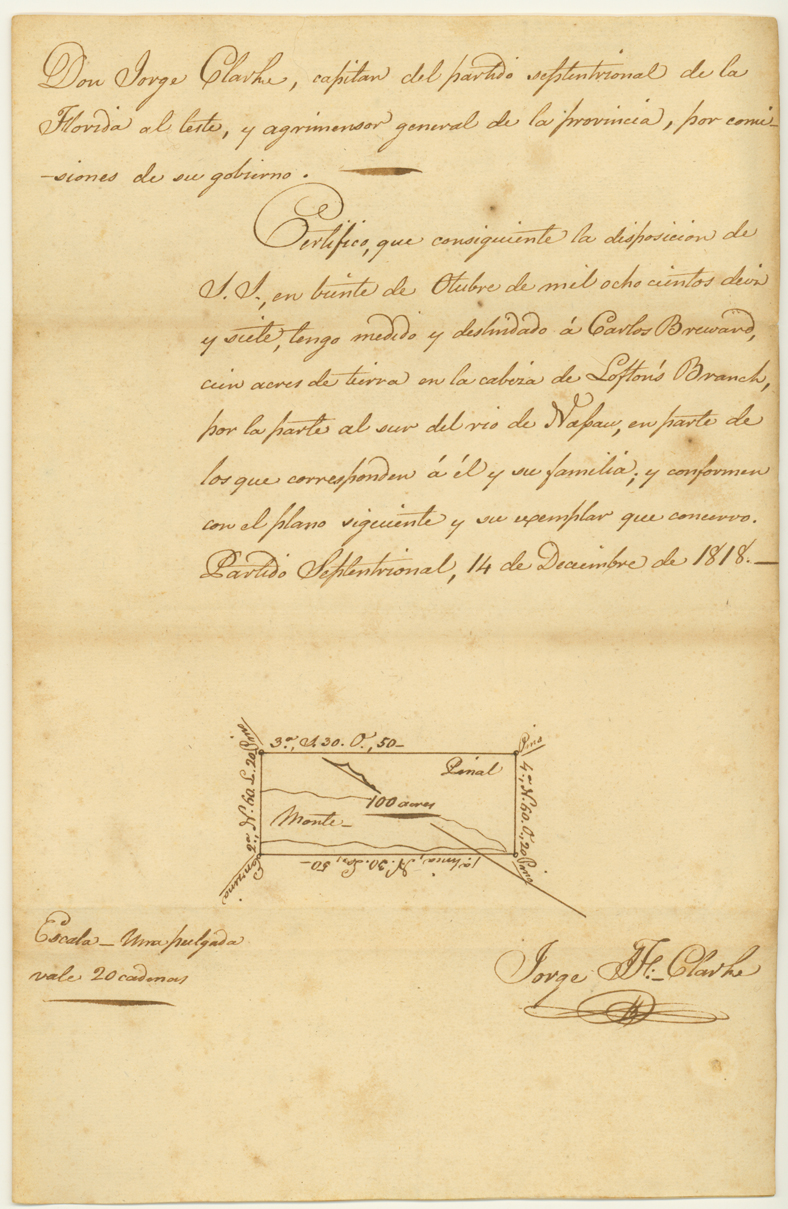 Don Jorge Clarke, capitan del partido septentrional de la
Florida al leste, y agrimensor general de la provincia, por comi-
-siones de su gobierno.
Certifico, que consiguiente la disposicion de
S. S., en binte de Otubre de mil ocho cientos deiz
y siete, tengo medido y deslindado á Carlos Breward,
cien acres de tierra en la cabeza de Lofton's Branch,
por la parte al sur del rio de Nassau, en parte de
los que corresponden á él y su familia; y conformen
con el plano siguiente y su exemplar que concervo.
Partido Septentrional, 14 de Deciembre de 1818.
3ª, S. 30. O., 50-
Pino
Pino
Pinal
2ª, N. 60. L. 20
4ª, N. 60. O., 20
100 acres
Monte-
1ª linia, N. 30. L., 50-
Pino
Escala- Una pulgada
vale 20 cadenas
Jorge J. F. Clarke